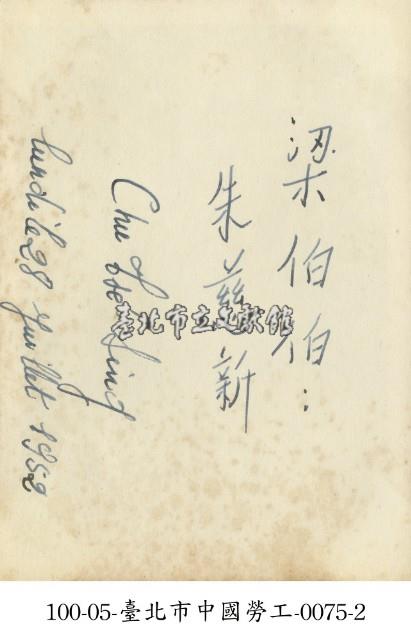 梁伯伯：
朱茲新
Chu Tse Sing
lundi le 28 Juillet 1952
臺北市立文獻館
100-05-臺北市中國勞工-0075-2